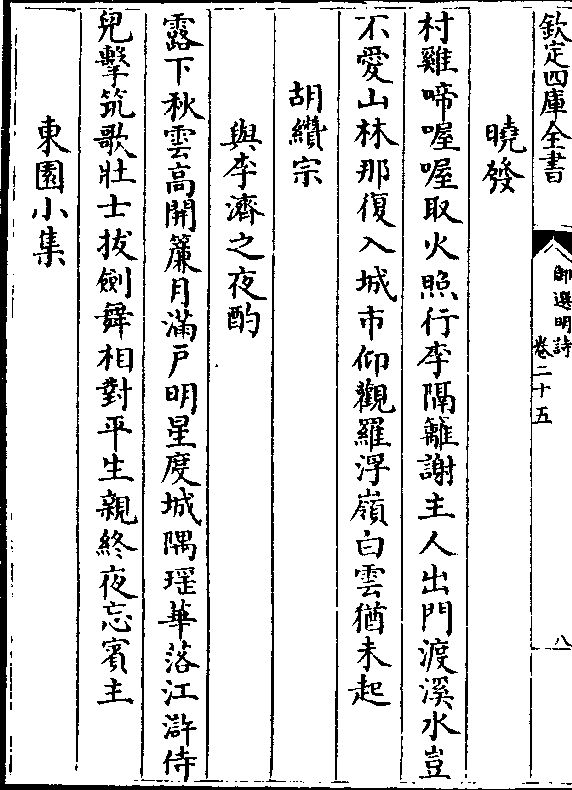 欽定四庫全書
御選明詩
卷二十五
八
曉發
村雞啼喔喔取火照行李隔籬謝主人出門渡溪水豈
不愛山林那復入城市仰觀羅浮嶺白雲猶未起
胡纘宗
與李濟之夜酌
露下秋雲高開簾月滿戶明星度城隅瑶華落江滸侍
兒擊筑歌壯士拔劍舞相對平生親終夜忘賓主
東園小集